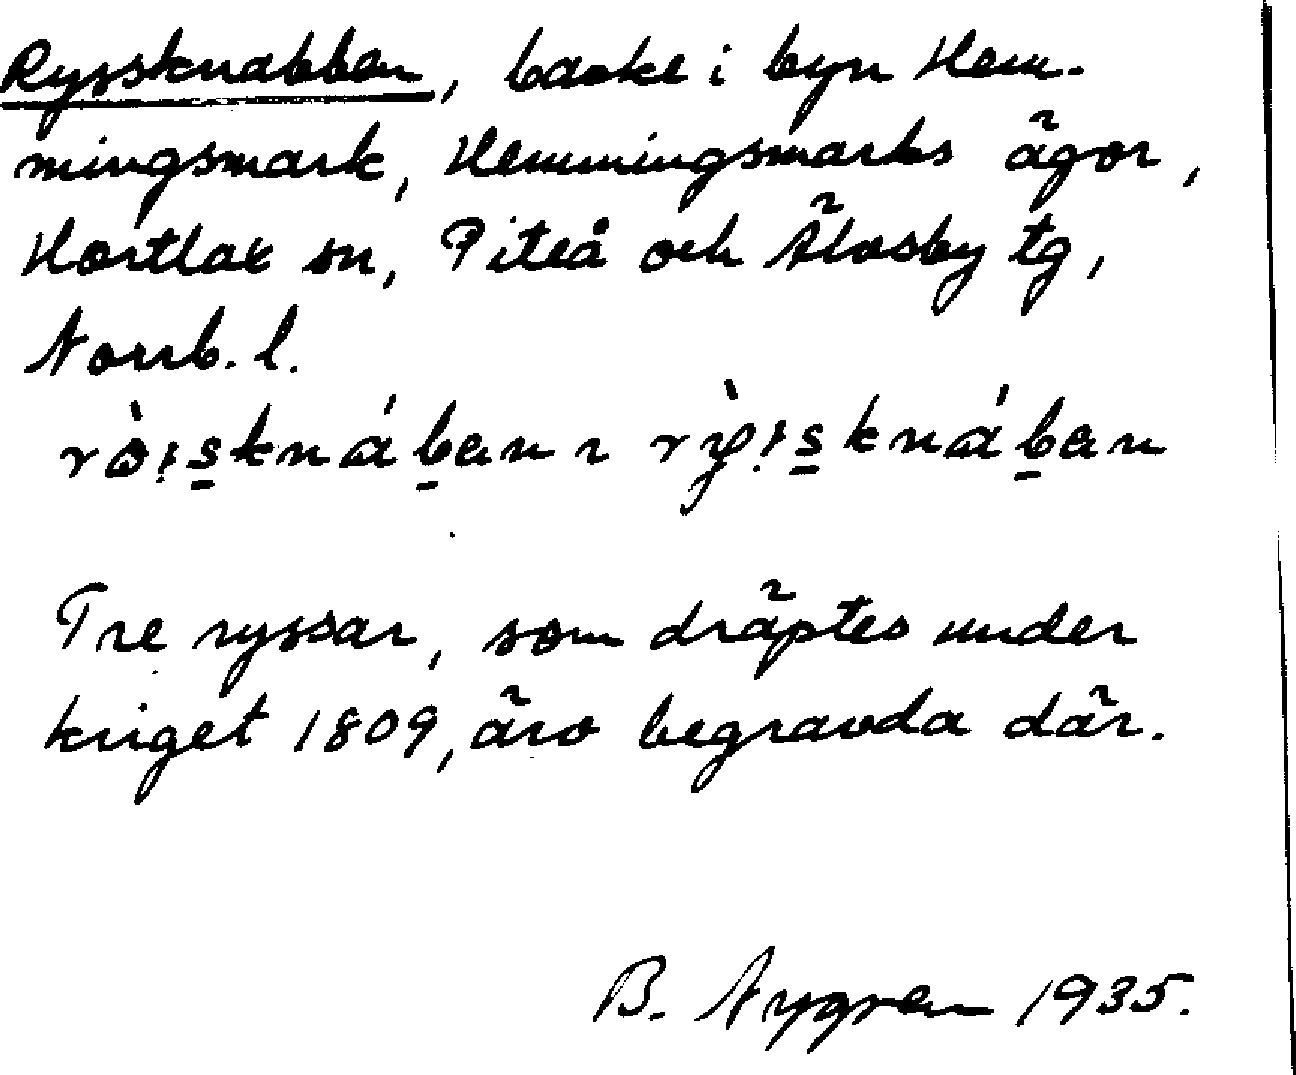 Ryssknabben, backe i byn Hem-
mingsmark, Hemmingsmarks ägor,
Hortlax sn, Piteå och Älvsby tg,
Norrb. l.
Tre ryssar, som dräptes under
kriget 1809, äro begravda där.
B. Nygren 1935.